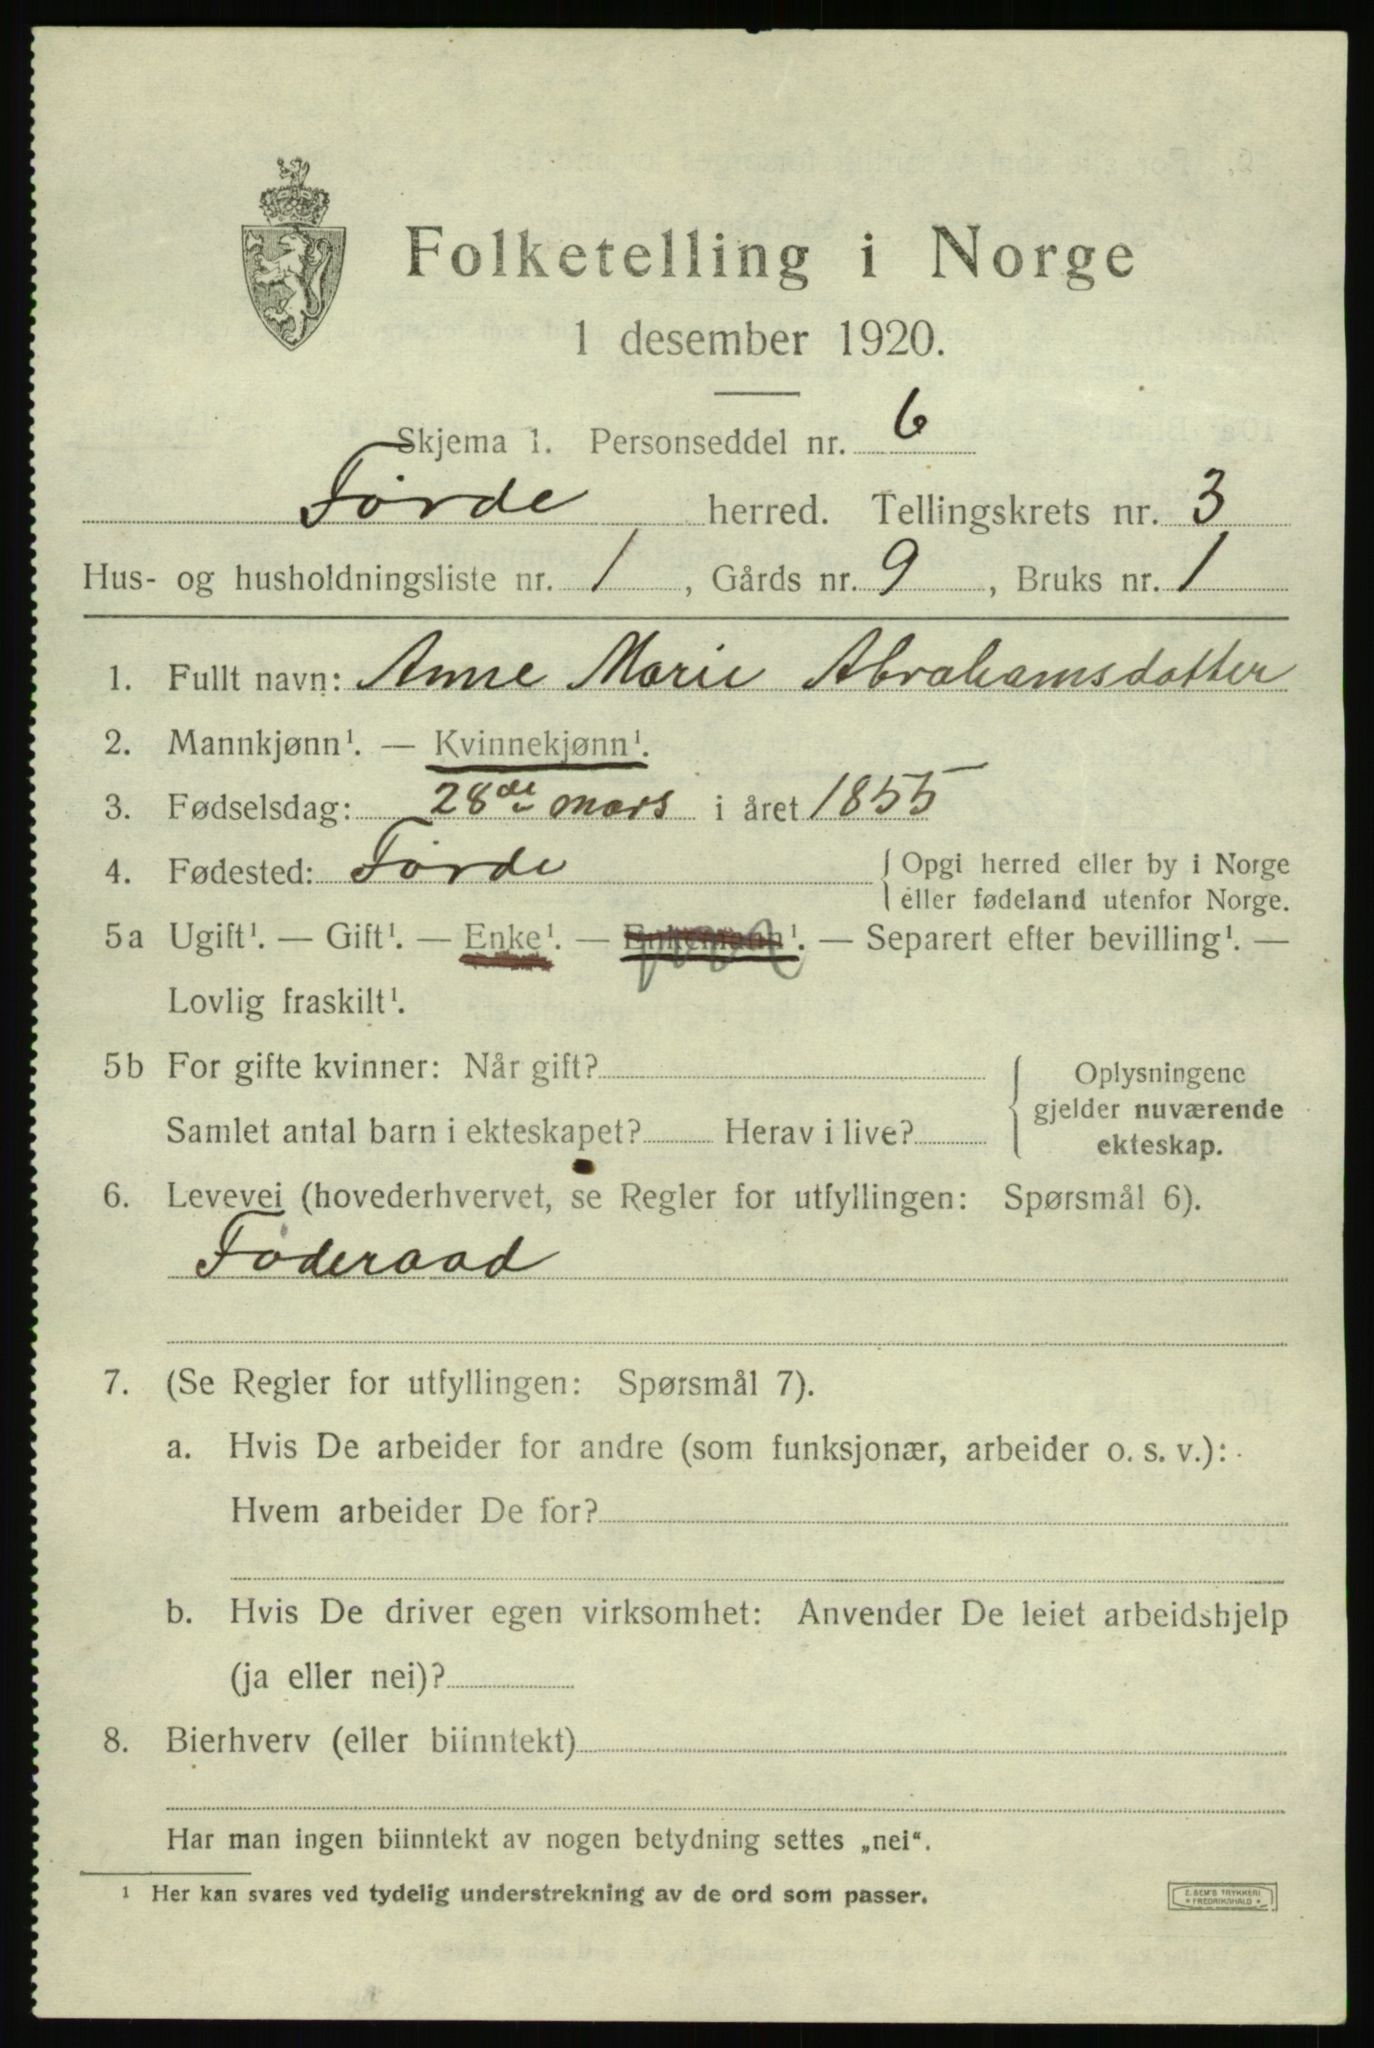 Folketelling i Norge
1 desember 1920.
Skjema 1. Personseddel nr. 6
Førde herred. Tellingskrets nr. 3
Hus- og husholdningsliste nr. 1, Gårds nr. 9, Bruks nr. 1
1. Fullt navn: Anne Marie Abrahamsdatter
2. Mannkjønn¹. — Kvinnekjønn¹.
3. Fødselsdag: 28de mars i året 1855
4. Fødested: Førde { Opgi herred eller by i Norge
eller fødeland utenfor Norge.
5a Ugift¹. — Gift¹. — Enke¹. — Enkemann¹. — Separert efter bevilling¹. —
Lovlig fraskilt¹.
5b For gifte kvinner: Når gift?
Samlet antal barn i ekteskapet? Herav i live?
Oplysningene
gjelder nuværende
ekteskap.
6. Levevei (hovederhvervet, se Regler for utfyllingen: Spørsmål 6).
Føderaad
7. (Se Regler for utfyllingen: Spørsmål 7).
a. Hvis De arbeider for andre (som funksjonær, arbeider o. s. v.):
Hvem arbeider De for?
b. Hvis De driver egen virksomhet: Anvender De leiet arbeidshjelp
(ja eller nei)?
8. Bierhverv (eller biinntekt)
Har man ingen biinntekt av nogen betydning settes „nei“.
¹ Her kan svares ved tydelig understrekning av de ord som passer.
E. SEM'S TRYKKERI
* FREDRIKSHALD *